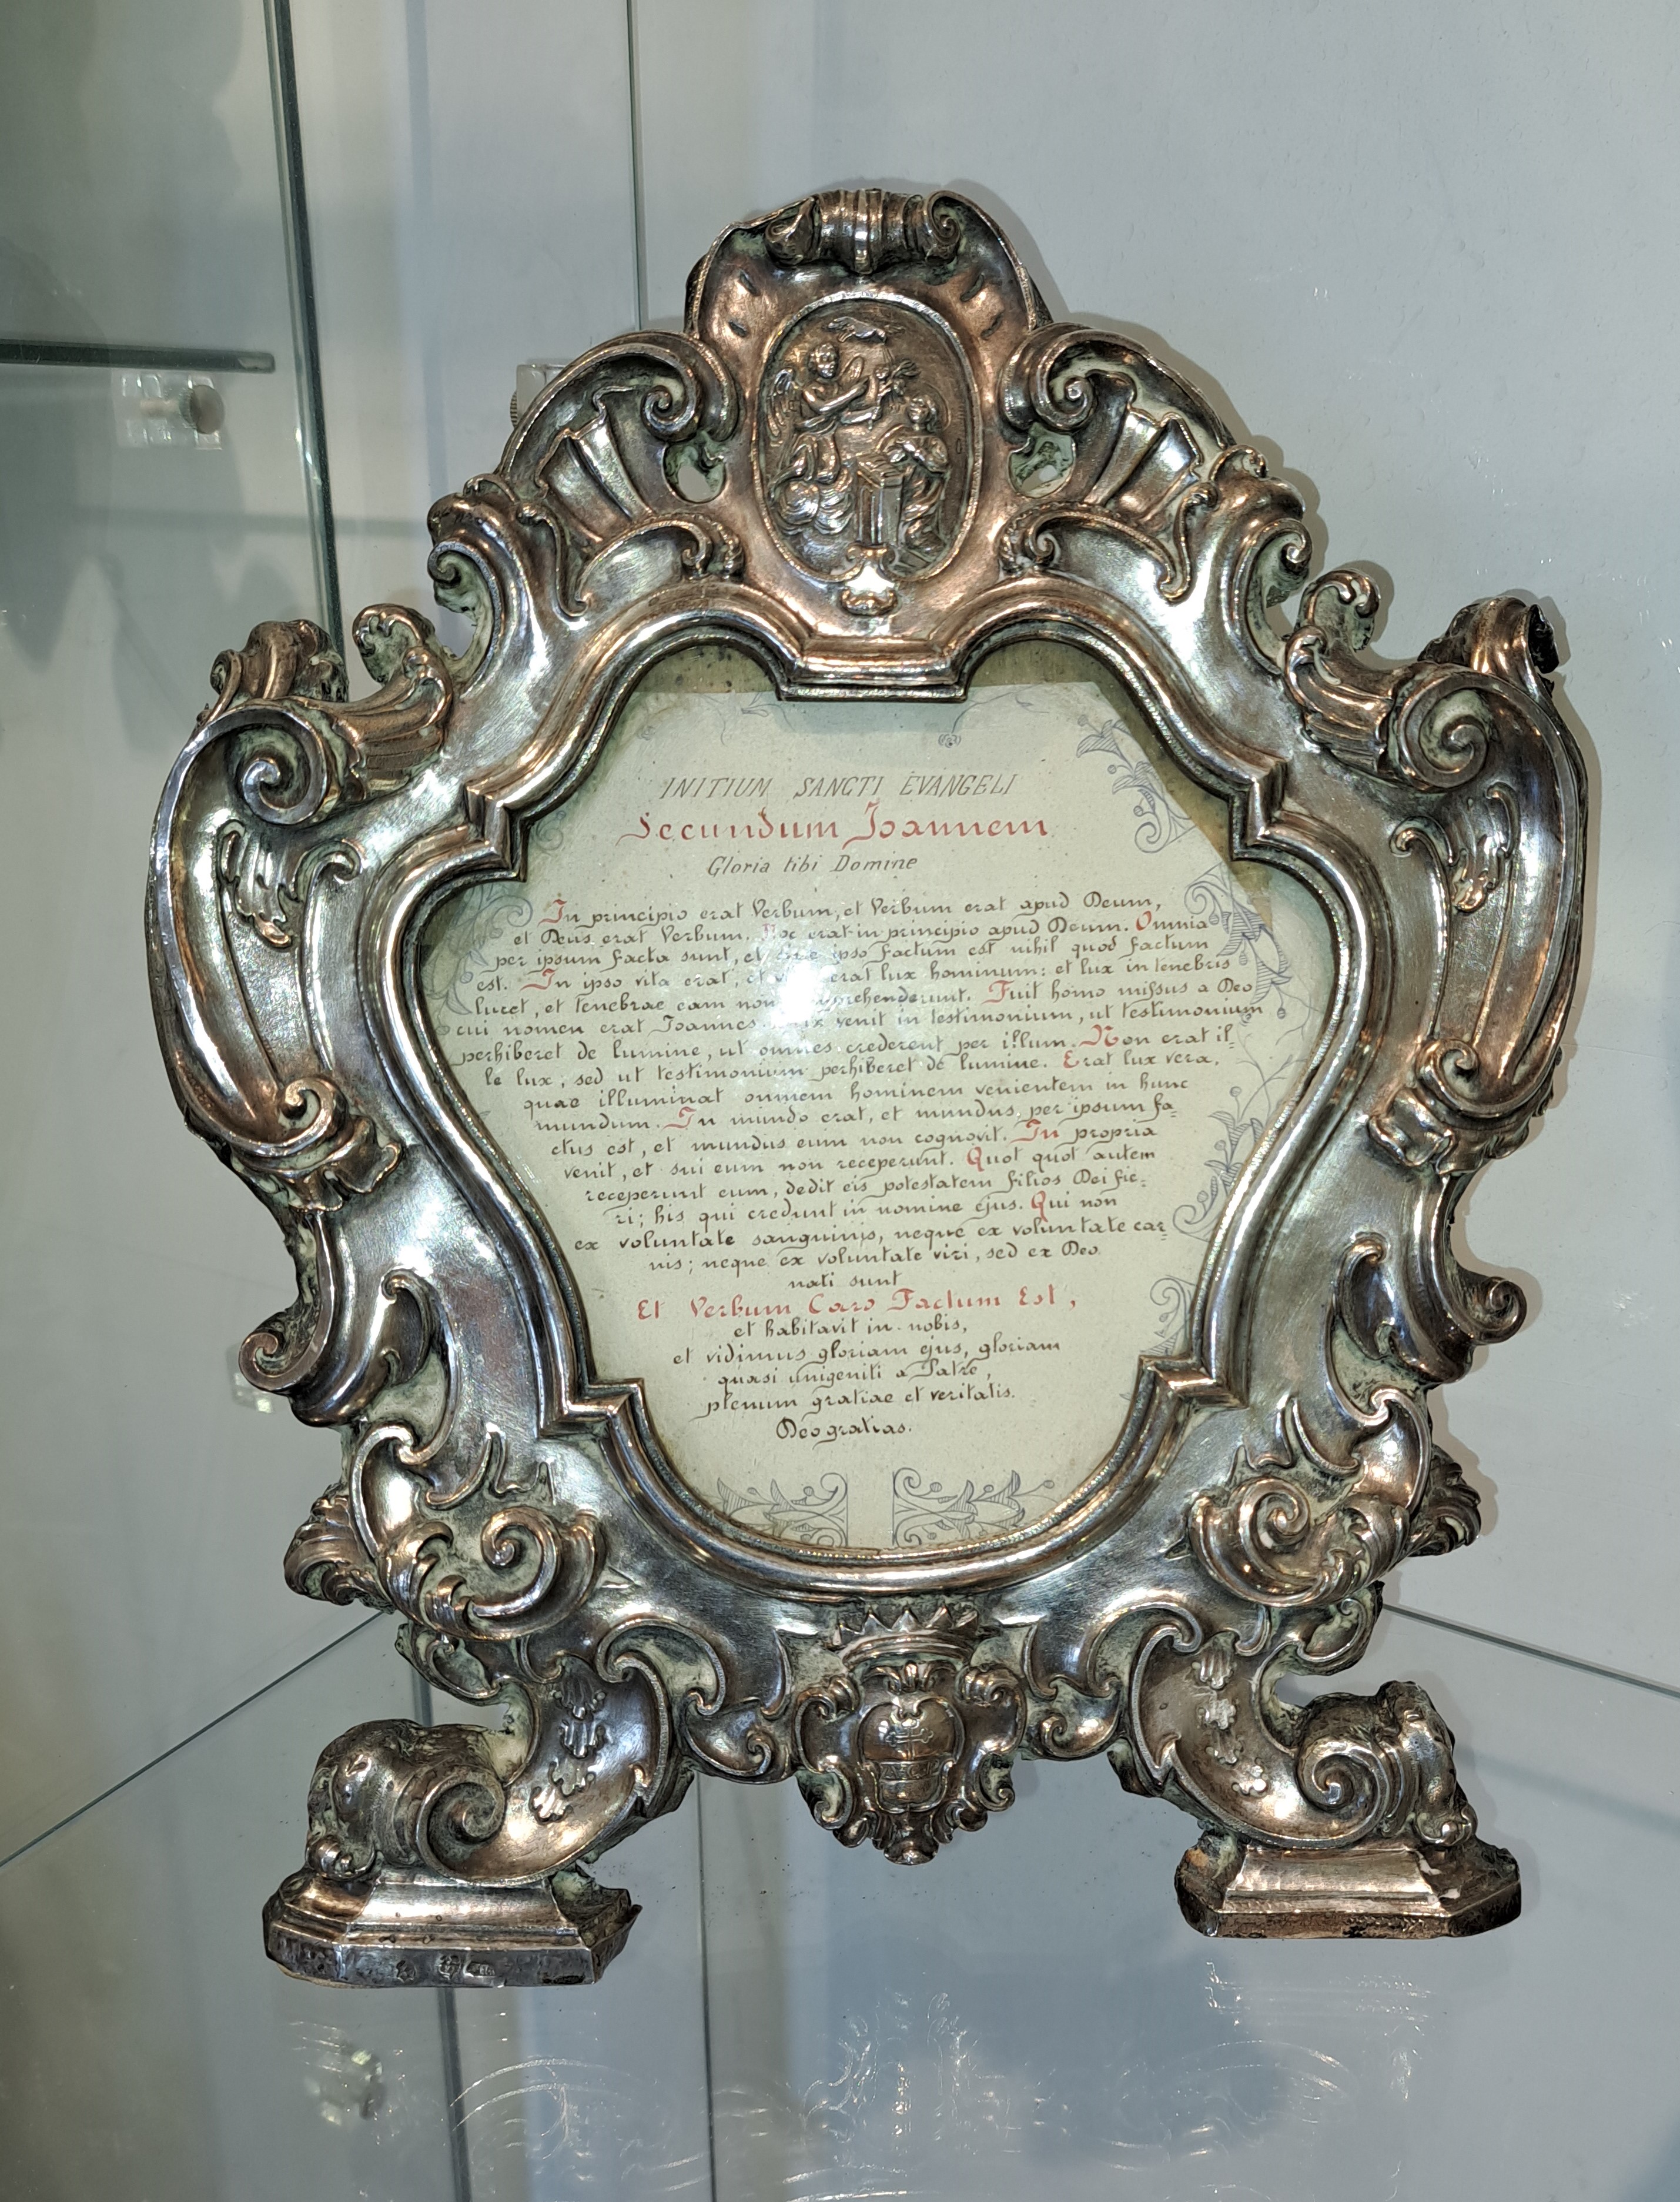 INITIUM SANCTI EVANGELI
Secundum Joannem
Gloria tibi Domine
In principio erat Verbum, et Verbum erat apud Deum,
et Deus erat Verbum. Hoc erat in principio apud Deum. Omnia
per ipsum facta sunt, et sine ipso factum est nihil quod factum
est. In ipso vita erat, et erat lux hominum: et lux in tenebris
lucet, et tenebrae eam non comprehenderunt. Fuit homo missus a Deo
cui nomen erat Joannes. venit in testimonium, ut testimonium
perhiberet de lumine, ut omnes crederent per illum. Non erat il-
le lux, sed ut testimonium perhiberet de lumine. Erat lux vera,
quae illuminat omnem hominem venientem in hunc
mundum. In mundo erat, et mundus per ipsum fa-
ctus est, et mundus eum non cognovit. In propria
venit, et sui eum non receperunt. Quot quot autem
receperunt eum, dedit eis potestatem filios Dei fie-
ri; his qui credunt in nomine ejus. Qui non
ex voluntate sanguinis, neque ex voluntate car-
nis; neque ex voluntate viri, sed ex Deo
nati sunt
Et Verbum Caro Factum Est,
et habitavit in nobis,
et vidimus gloriam ejus, gloriam
quasi unigeniti a Patre,
plenum gratiae et veritatis.
Deo gratias.